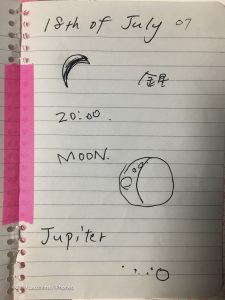 18th of July 07
金星
20:00.
MOON.
Jupiter